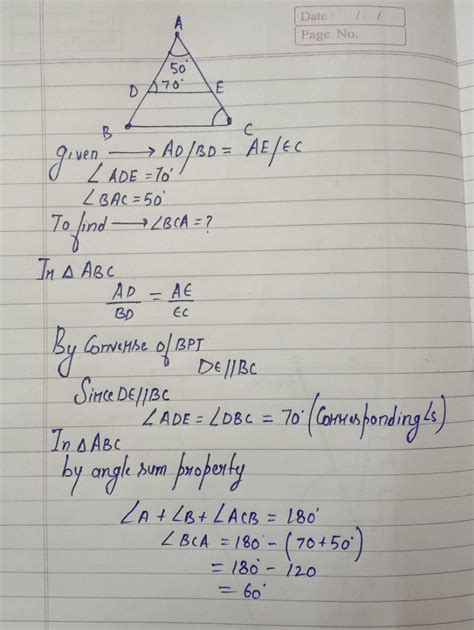 Date : / /
Page No.
A
50°
D 70° E
B C
given ⟶ AD/BD = AE/EC
∠ADE = 70°
∠BAC = 50°
To find ⟶ ∠BCA = ?
In △ ABC
AD/BD = AE/EC
By Converse of BPT
DE//BC
Since DE//BC
∠ADE = ∠DBC = 70° (Corresponding ∠s)
In △ABC
by angle sum property
∠A + ∠B + ∠ACB = 180°
∠BCA = 180° - (70 + 50°)
= 180° - 120
= 60°